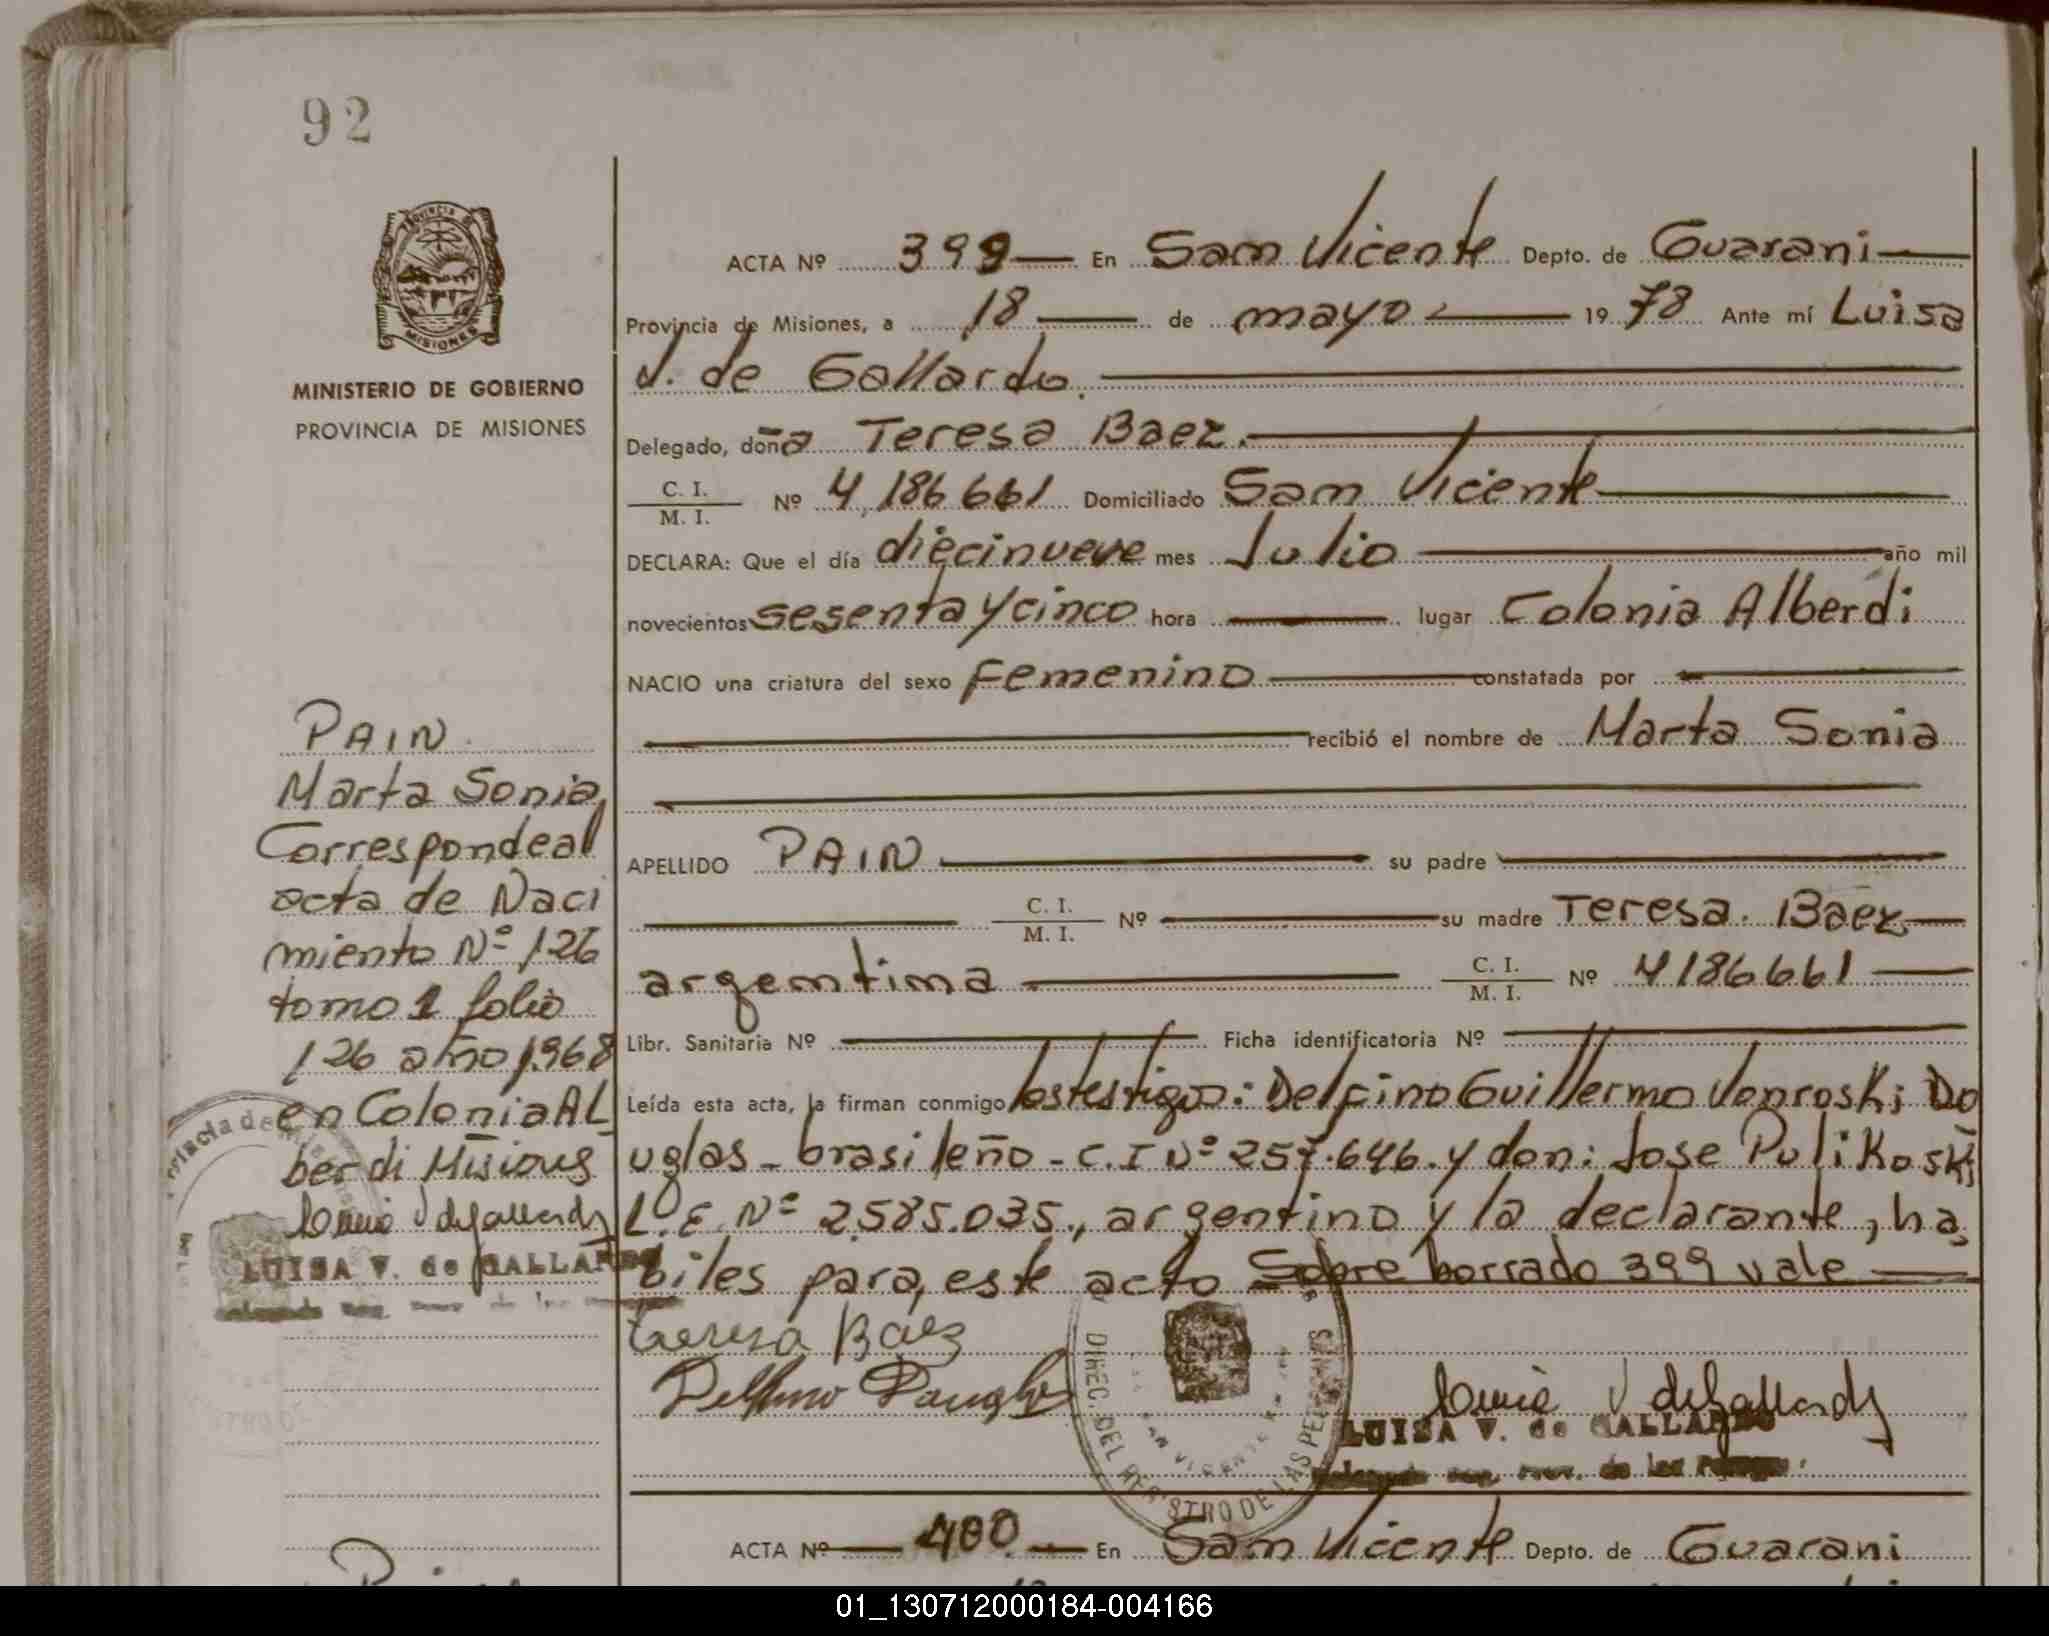 92
PROVINCIA DE
MISIONES
MINISTERIO DE GOBIERNO
PROVINCIA DE MISIONES
ACTA Nº 399 En San Vicente Depto. de Guarani
Provincia de Misiones, a 18 de mayo 1978 Ante mí Luisa
V. de Gallardo.
Delegado, doña Teresa Baez.
C. I.
M. I. Nº 4.186661 Domiciliado San Vicente
DECLARA: Que el día diecinueve mes Julio año mil
novecientos sesenta y cinco hora lugar Colonia Alberdi
NACIO una criatura del sexo Femenino constatada por
recibió el nombre de Marta Sonia
APELLIDO PAIN su padre
C. I.
M. I. Nº su madre Teresa. Baez
argentina C. I.
M. I. Nº 4186661
Libr. Sanitaria Nº Ficha identificatoria Nº
Leída esta acta, la firman conmigo los testigos: Delfino Guillermo Vonroski Do
uglas - brasileño - C.I Nº 257.646. y don: Jose Pulikoski
L.E. Nº 2.585.035., argentino y la declarante, ha
biles para este acto Sobre borrado 399 vale
Teresa Baez
Delfino Douglas
Luisa V de Gallardo
LUISA V. de GALLARDO
DIREC. DEL REGISTRO DE LAS PERSONES
SAN VICENTE
PAIN
Marta Sonia
Corresponde al
acta de Naci
miento Nº 126
tomo 1 folio
126 año 1968
en Colonia AL
berdi Misiones
Luisa V de Gallardo
LUISA V. de GALLARDO
ACTA Nº 400 En San Vicente Depto. de Guarani
01_130712000184-004166